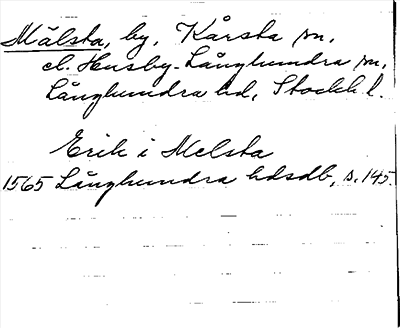 Mälsta, by, Kårsta sn,
el. Husby-Långhundra sn,
Långhundra hd, Stockh. l.
Erik i Melsta
1565 Långhundra hdsdb, s. 145.